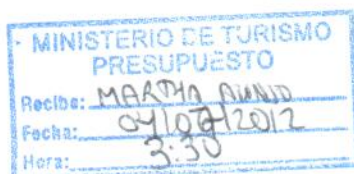 MINISTERIO DE TURISMO
PRESUPUESTO
Recibe: MARTHA
Fecha: 04/07/2012
Hora: 3:30